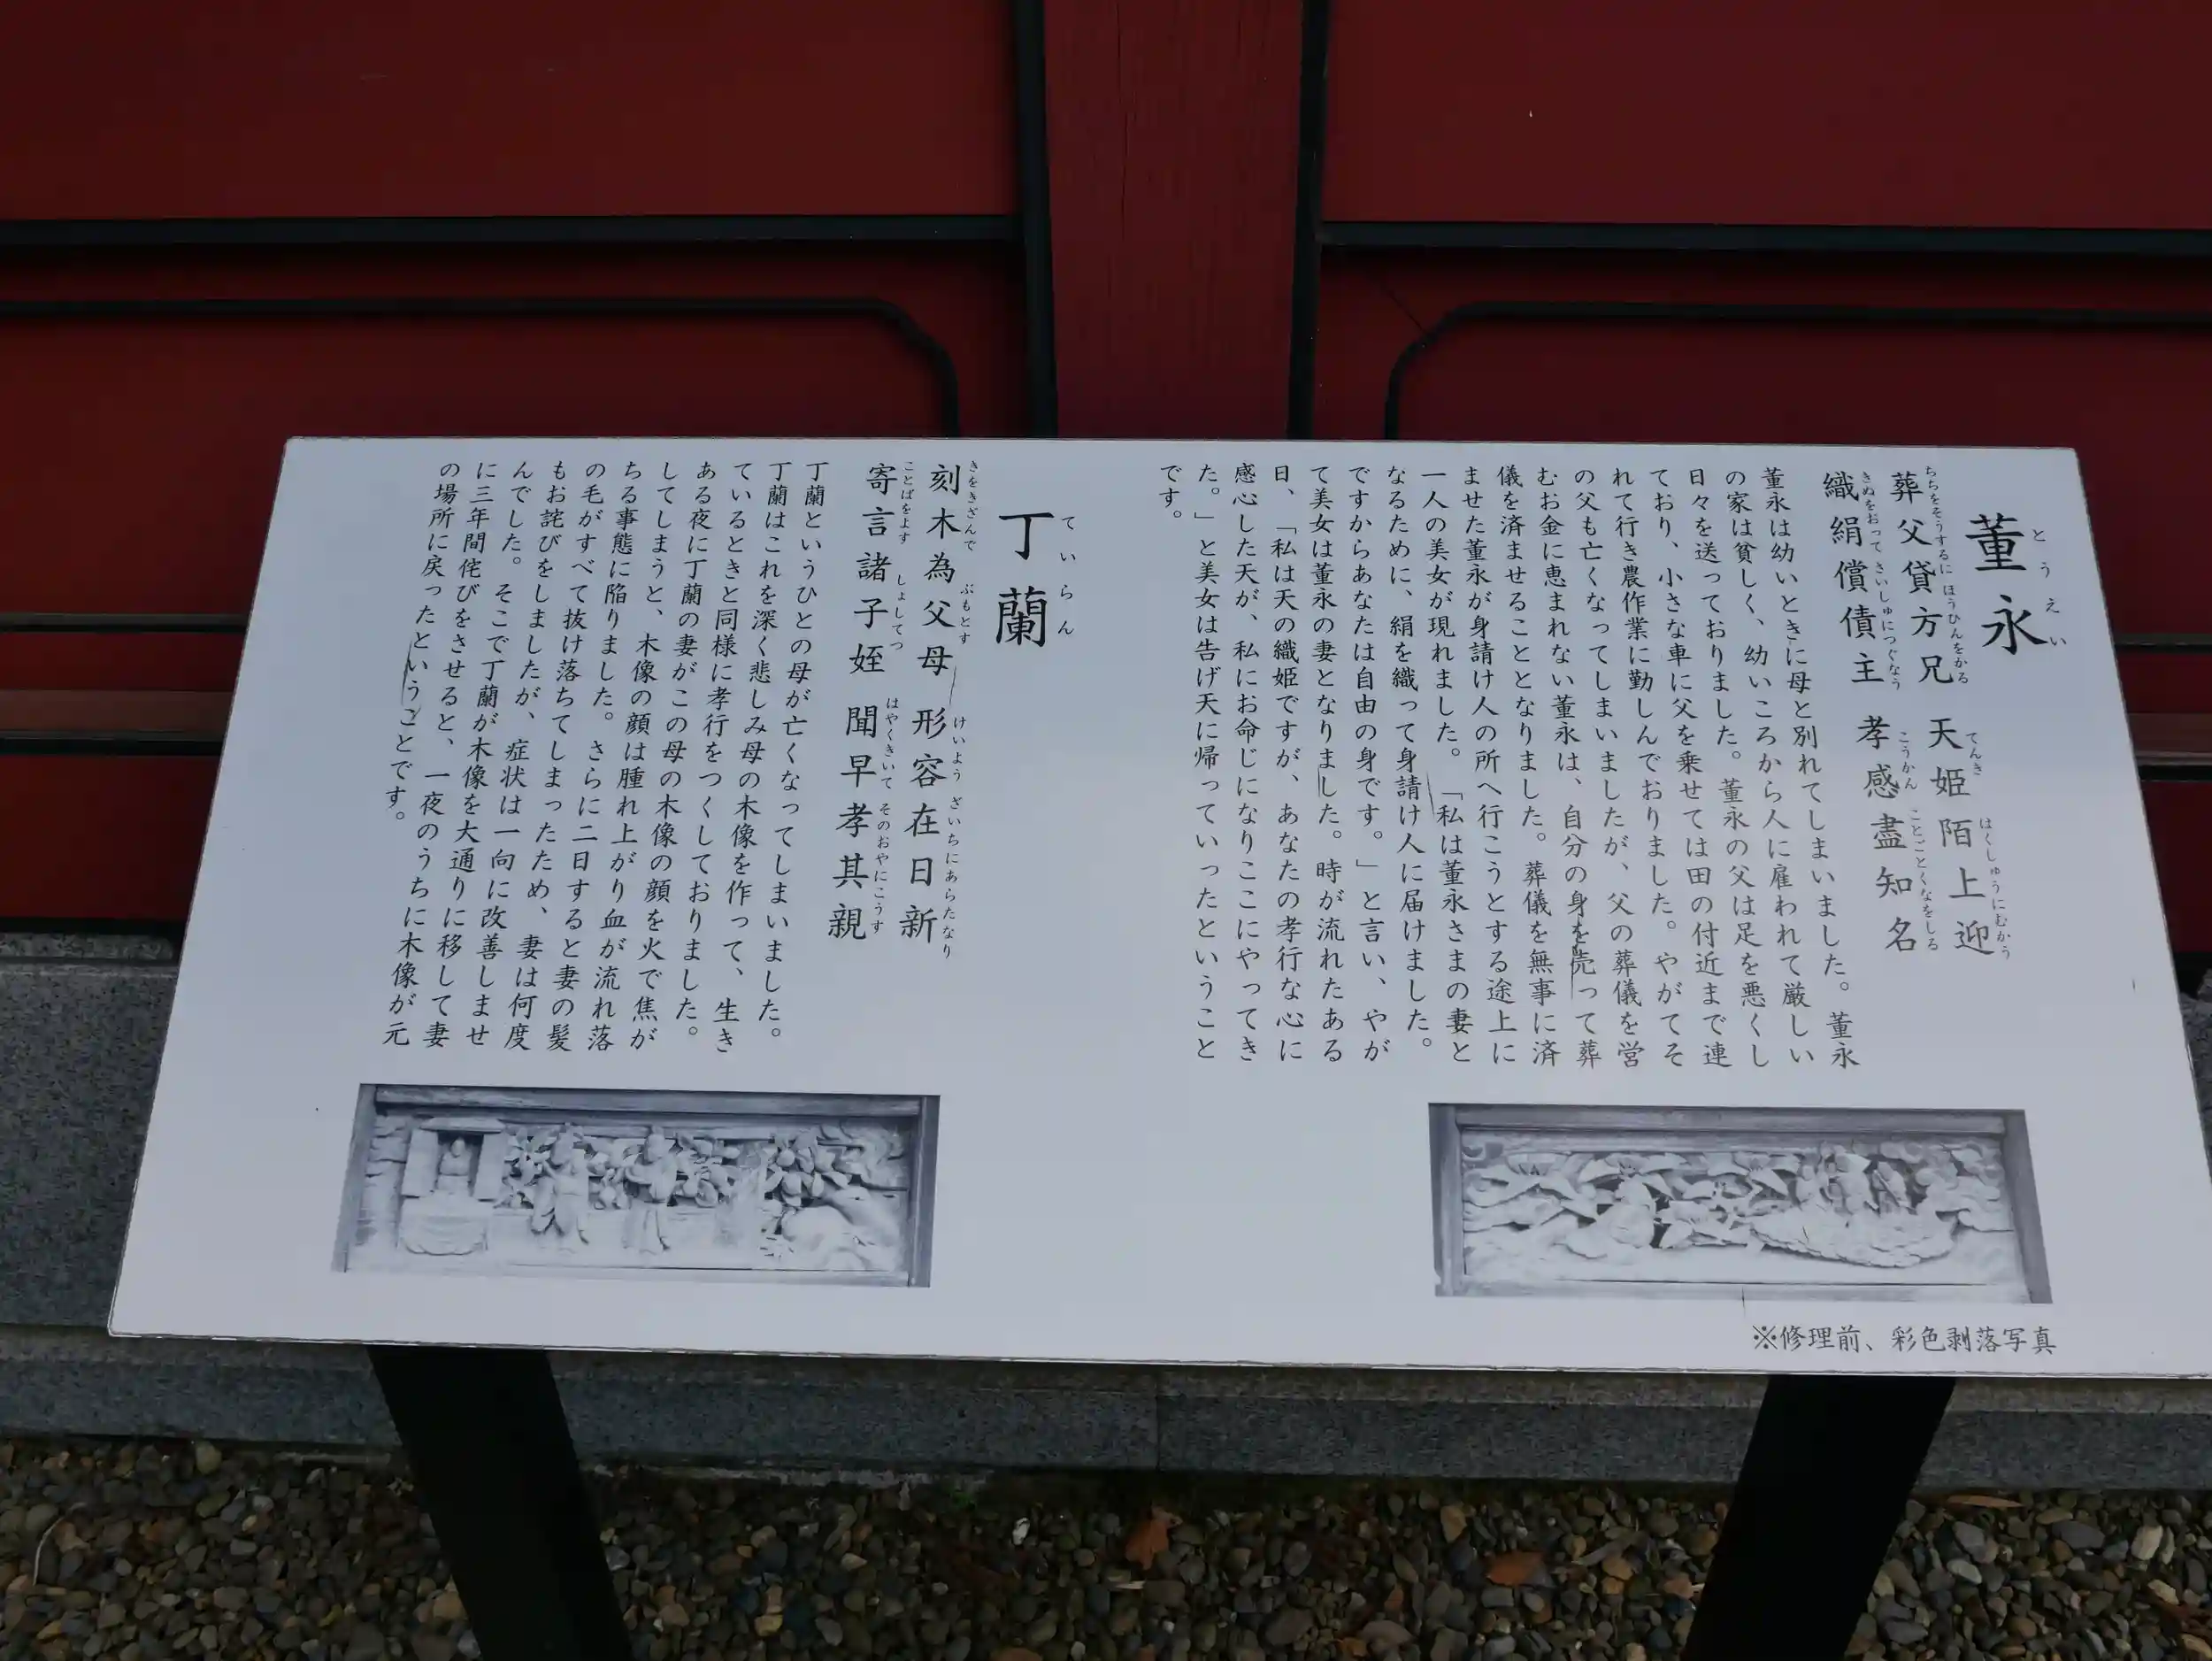 董永
とうえい
葬父貸方兄 天姫陌上迎
ちちをそうするに ほうひんをかる てんき はくしゅうにむかう
織絹償債主 孝感盡知名
きぬをおって さいしゅにつぐなう こうかん ことごとくなをしる
董永は幼いときに母と別れてしまいました。董永
の家は貧しく、幼いころから人に雇われて厳しい
日々を送っておりました。董永の父は足を悪くし
ており、小さな車に父を乗せては田の付近まで連
れて行き農作業に勤しんでおりました。やがてそ
の父も亡くなってしまいましたが、父の葬儀を営
むお金に恵まれない董永は、自分の身を売って葬
儀を済ませることとなりました。葬儀を無事に済
ませた董永が身請け人の所へ行こうとする途上に
一人の美女が現れました。「私は董永さまの妻と
なるために、絹を織って身請け人に届けました。
ですからあなたは自由の身です。」と言い、やが
て美女は董永の妻となりました。時が流れたある
日、「私は天の織姫ですが、あなたの孝行な心に
感心した天が、私にお命じになりここにやってき
た。」と美女は告げ天に帰っていったということ
です。
丁蘭
ていらん
刻木為父母 形容在日新
きをきざんで ぶもとす けいよう ざいちにあらたなり
寄言諸子姪 聞早孝其親
ことばをよす しょしてつ はやくきいて そのおやにこうす
丁蘭というひとの母が亡くなってしまいました。
丁蘭はこれを深く悲しみ母の木像を作って、生き
ているときと同様に孝行をつくしておりました。
ある夜に丁蘭の妻がこの母の木像の顔を火で焦が
してしまうと、木像の顔は腫れ上がり血が流れ落
ちる事態に陥りました。さらに二日すると妻の髪
の毛がすべて抜け落ちてしまったため、妻は何度
もお詫びをしましたが、症状は一向に改善しませ
んでした。そこで丁蘭が木像を大通りに移して妻
に三年間侘びをさせると、一夜のうちに木像が元
の場所に戻ったということです。
※修理前、彩色剥落写真